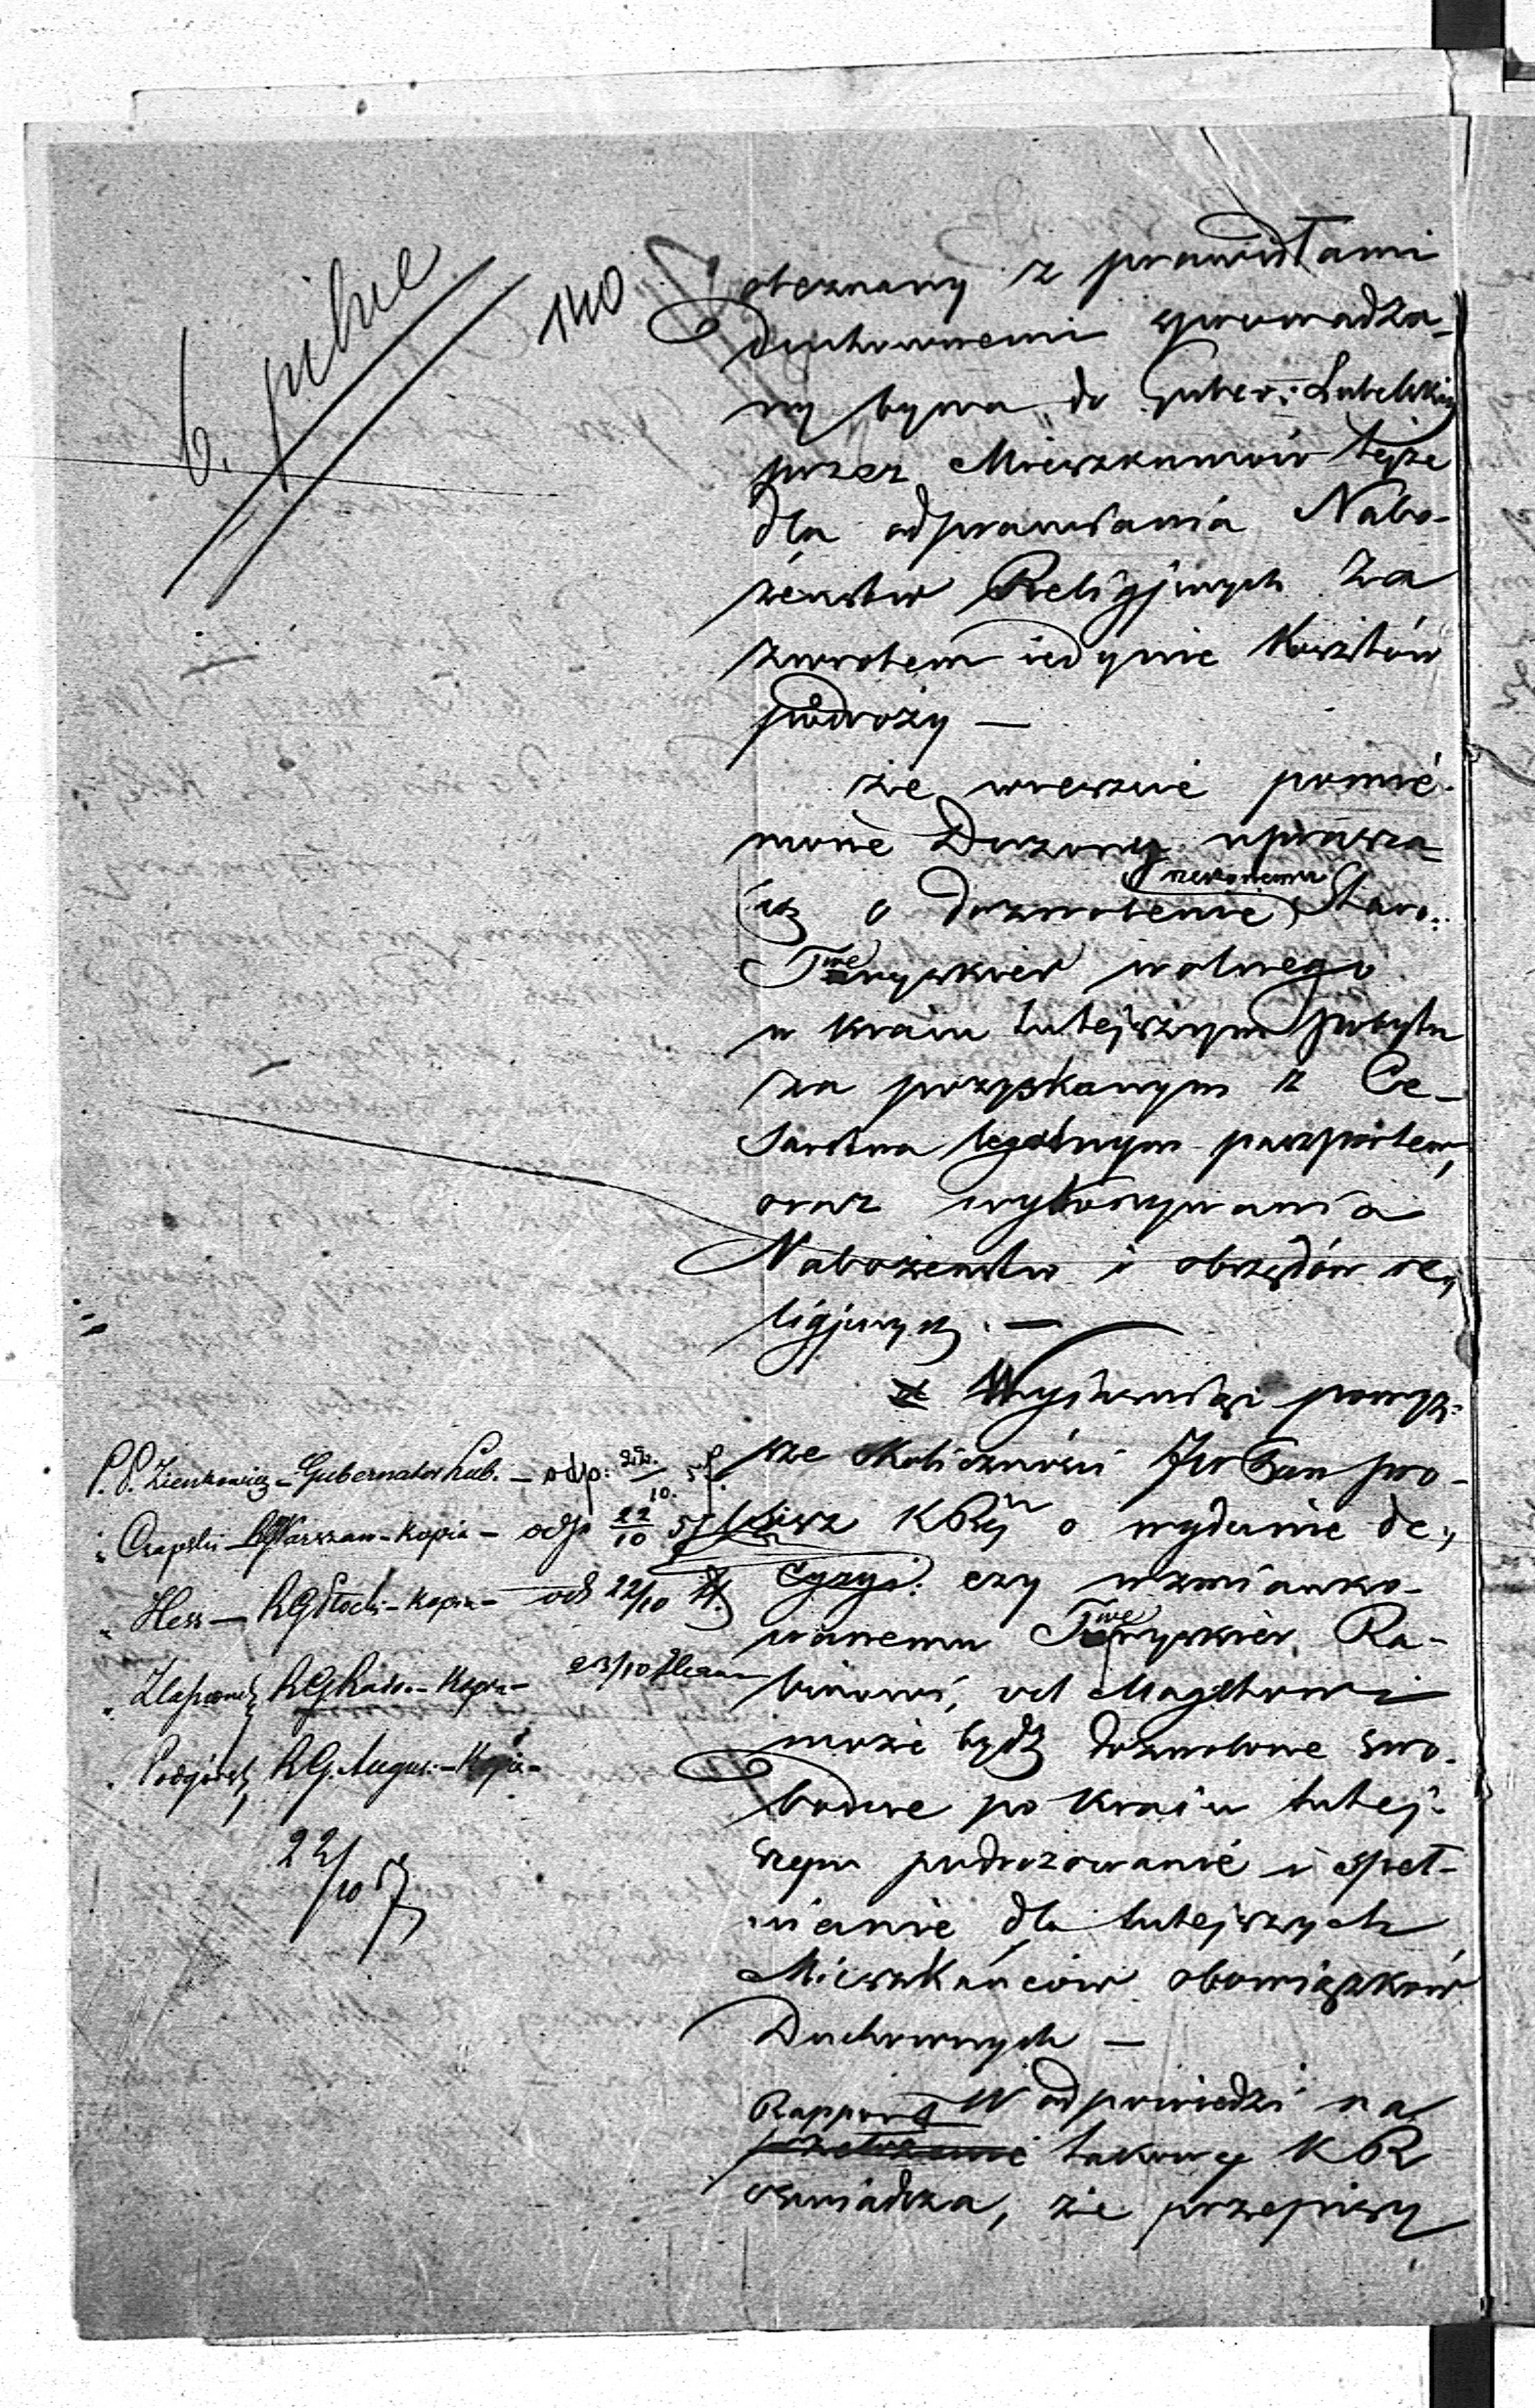 b. pilne
140
obeznany z prawidłami
duchownemi sprowadza-
ny bywa do Guber: Lubelskiej
przez Mieszkańców tejże
dla odprawiania Nabo-
żeństw Religijnych za
zwrotem iedynie kosztów
podroży —
że wreszcie pomie-
nione Dozory uprasza-
ią o dozwolenie rzeczonemu Staro:
Twerskiew wolnego
w kraiu tutejszym pobytu
za pozyskanym z Ce-
sarstwa legalnym paszportem,
oraz wykonywania
Nabożeństw i obrzędów re-
ligijnych. —
Wyłuszczając powyż-
sze okoliczności JW Pan pro-
sisz KRz o wydanie de-
cyzyi: czy wzmianko-
wanemu Twerskiew Ra-
binowi, vel Magstrowi
może bydź dozwolone swo-
bodne po kraiu tutej-
szym podrozowanie i speł-
nianie dla tutejszych
Mieszkańców obowiązków
Duchownych —
W odpowiedzi na
Rapport takowy KR
oświadcza, że przepisy
P. P. Zienkowicz – Gubernator Lub. – odp: 22/10. 57.
" Czapski – RG Warszaw – kopia – odp 22/10 57
" Hess – RG Płocki – kopia – od 22/10
" RG Rado. – Kopia – 23/10
" Podgórsk RG. Augus: – Kopia –
22/10 57